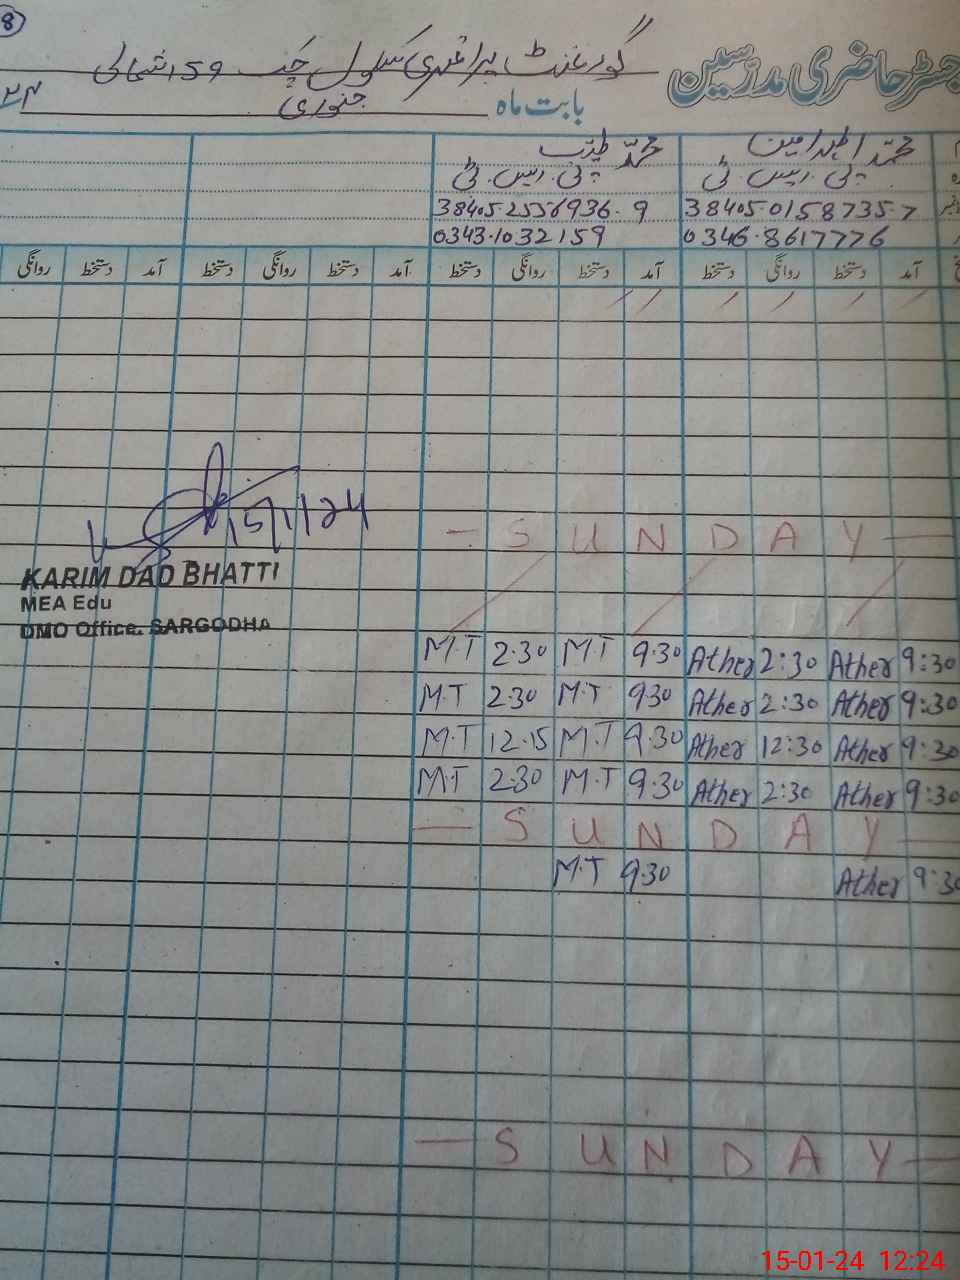 8
گورنمنٹ پرائمری سکول چک 159 شمالی
رجسٹر حاضری مدرسین
بابت ماہ جنوری ۲۴
محمد اطہر امین محمد طیب
پی ایس ٹی پی ایس ٹی
38405-0158735-7 38405-2556936-9
0346-8617776 0343-1032159
آمد دستخط روانگی دستخط آمد دستخط روانگی دستخط آمد دستخط روانگی دستخط آمد دستخط روانگی
15/1/24
— S U N D A Y —
KARIM DAD BHATTI
MEA Edu
DMO Office. SARGODHA
M.T 2.30 M.T 9.30 Ather 2:30 Ather 9:30
M.T 2.30 M.T 9.30 Ather 2:30 Ather 9:30
M.T 12.15 M.T 9.30 Ather 12:30 Ather 9:30
M.T 2.30 M.T 9.30 Ather 2:30 Ather 9:30
— S U N D A Y —
M.T 9.30 Ather 9:30
— S U N D A Y —
15-01-24 12:24